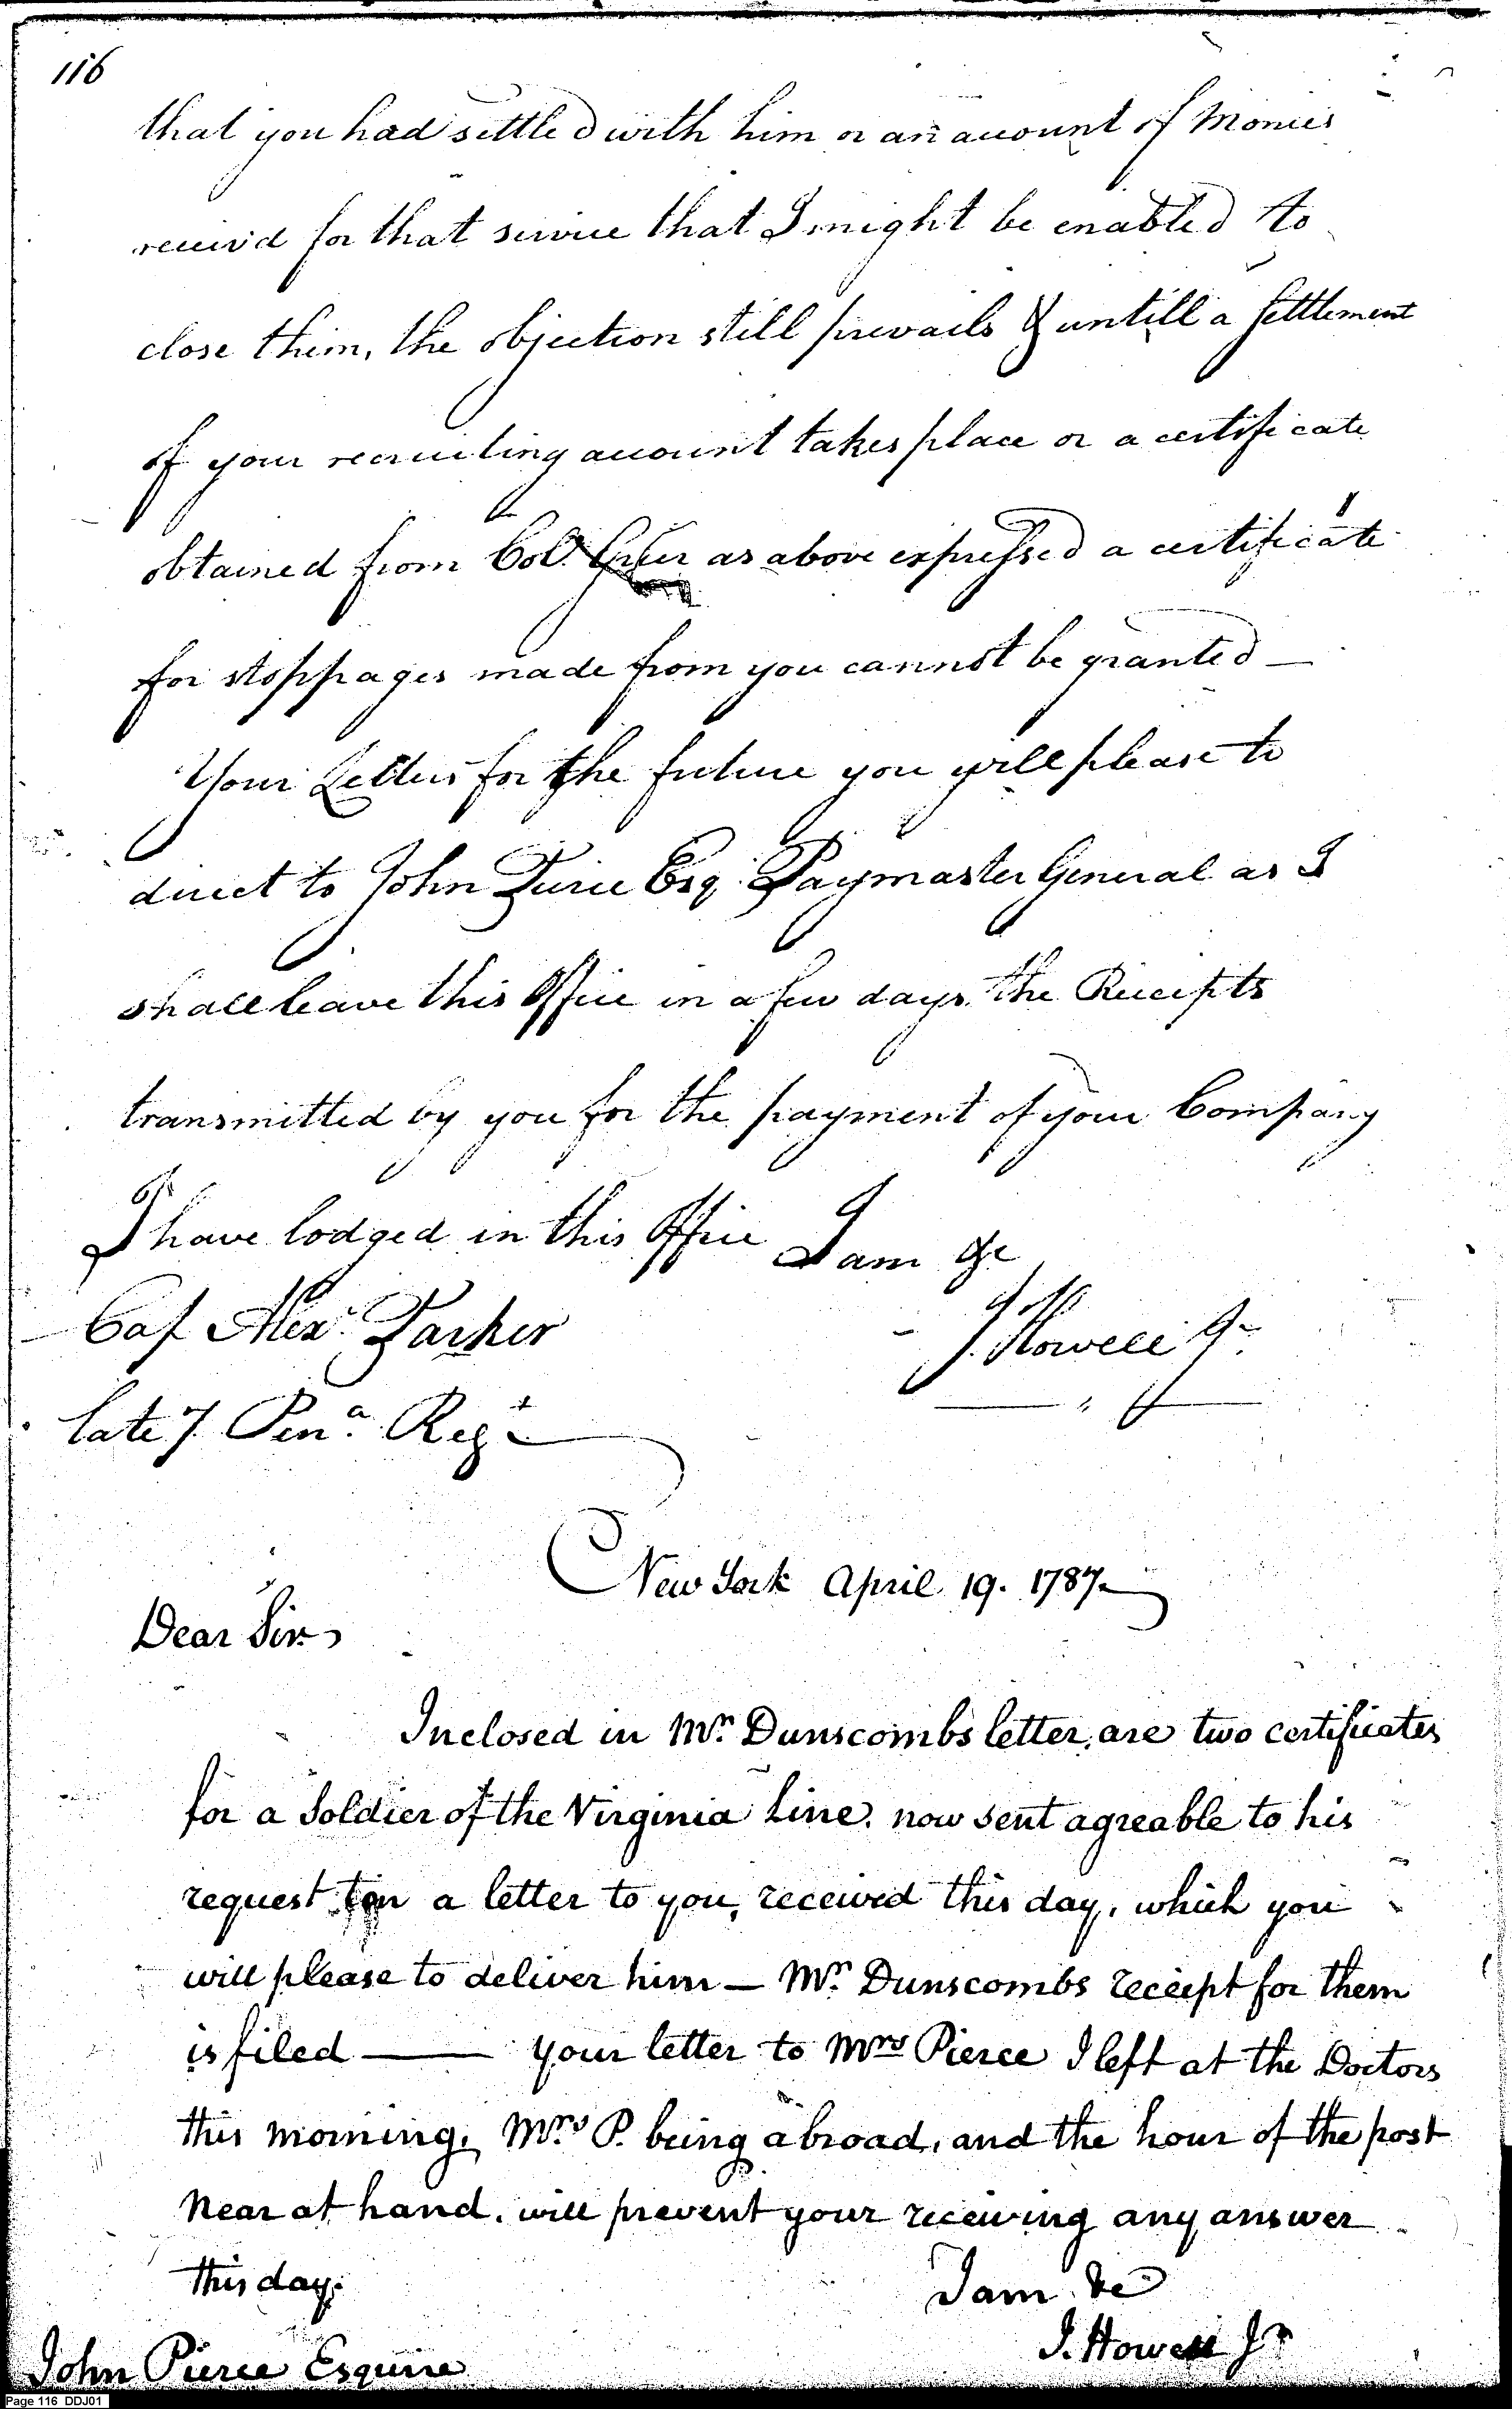 116
that you had settled with him or an account of Monies
receiv'd for that service that I might be enabled to
close them, the objection still prevails & untill a settlement
of your recruiting account takes place or a certificate
obtained from Col. as above expressed a certificate
for stoppages made from you cannot be granted —
Your Letters for the future you will please to
direct to John Pierce Esq. Paymaster General as I
shall leave this Office in a few days. the Receipts
transmitted by you for the payment of your Company
I have lodged in this Office I am &c
Cap Alexr. Parker J. Howell Jr.
late 7 Pena. Regt
New York April 19. 1787
Dear Sir
Inclosed in Mr. Dunscombs letter, are two certificates
for a Soldier of the Virginia Line. now sent agreable to his
request in a letter to you, received this day, which you
will please to deliver him — Mr. Dunscombs receipt for them
is filed — your letter to Mrs Pierce I left at the Doctors
this morning. Mrs P. being abroad, and the hour of the post
near at hand. will prevent your receiving any answer
this day. I am &c
J. Howell Jr
John Pierce Esquire
Page 116 DDJ01